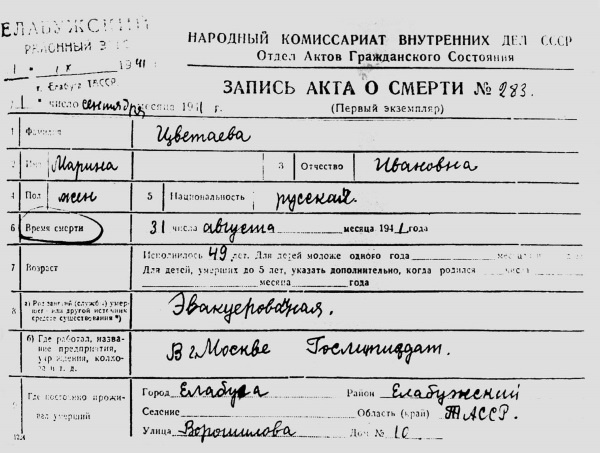 ЕЛАБУЖСКИЙ
РАЙОННЫЙ ЗАГС
1 IX 1941
г. Елабуга ТАССР
НАРОДНЫЙ КОМИССАРИАТ ВНУТРЕННИХ ДЕЛ СССР
Отдел Актов Гражданского Состояния
ЗАПИСЬ АКТА О СМЕРТИ № 283.
(Первый экземпляр)
1 число сентября месяца 1941 г.
1 Фамилия Цветаева
2 Имя Марина 3 Отчество Ивановна
4 Пол жен 5 Национальность русская.
6 Время смерти 31 числа августа месяца 1941 года
7 Возраст
Исполнилось 49 лет. Для детей моложе одного года
Для детей, умерших до 5 лет, указать дополнительно, когда родился числа
месяца года
8 а) Род занятий (службы) умершего или другой источник средств существования *) Эвакуерованая.
б) Где работал, название предприятия, учреждения, колхоза и т. д. В г. Москве Гослитиздат.
Где постоянно проживал умерший
Город Елабуга Район Елабужский
Селение Область (край) ТАССР.
Улица Ворошилова Дом № 10